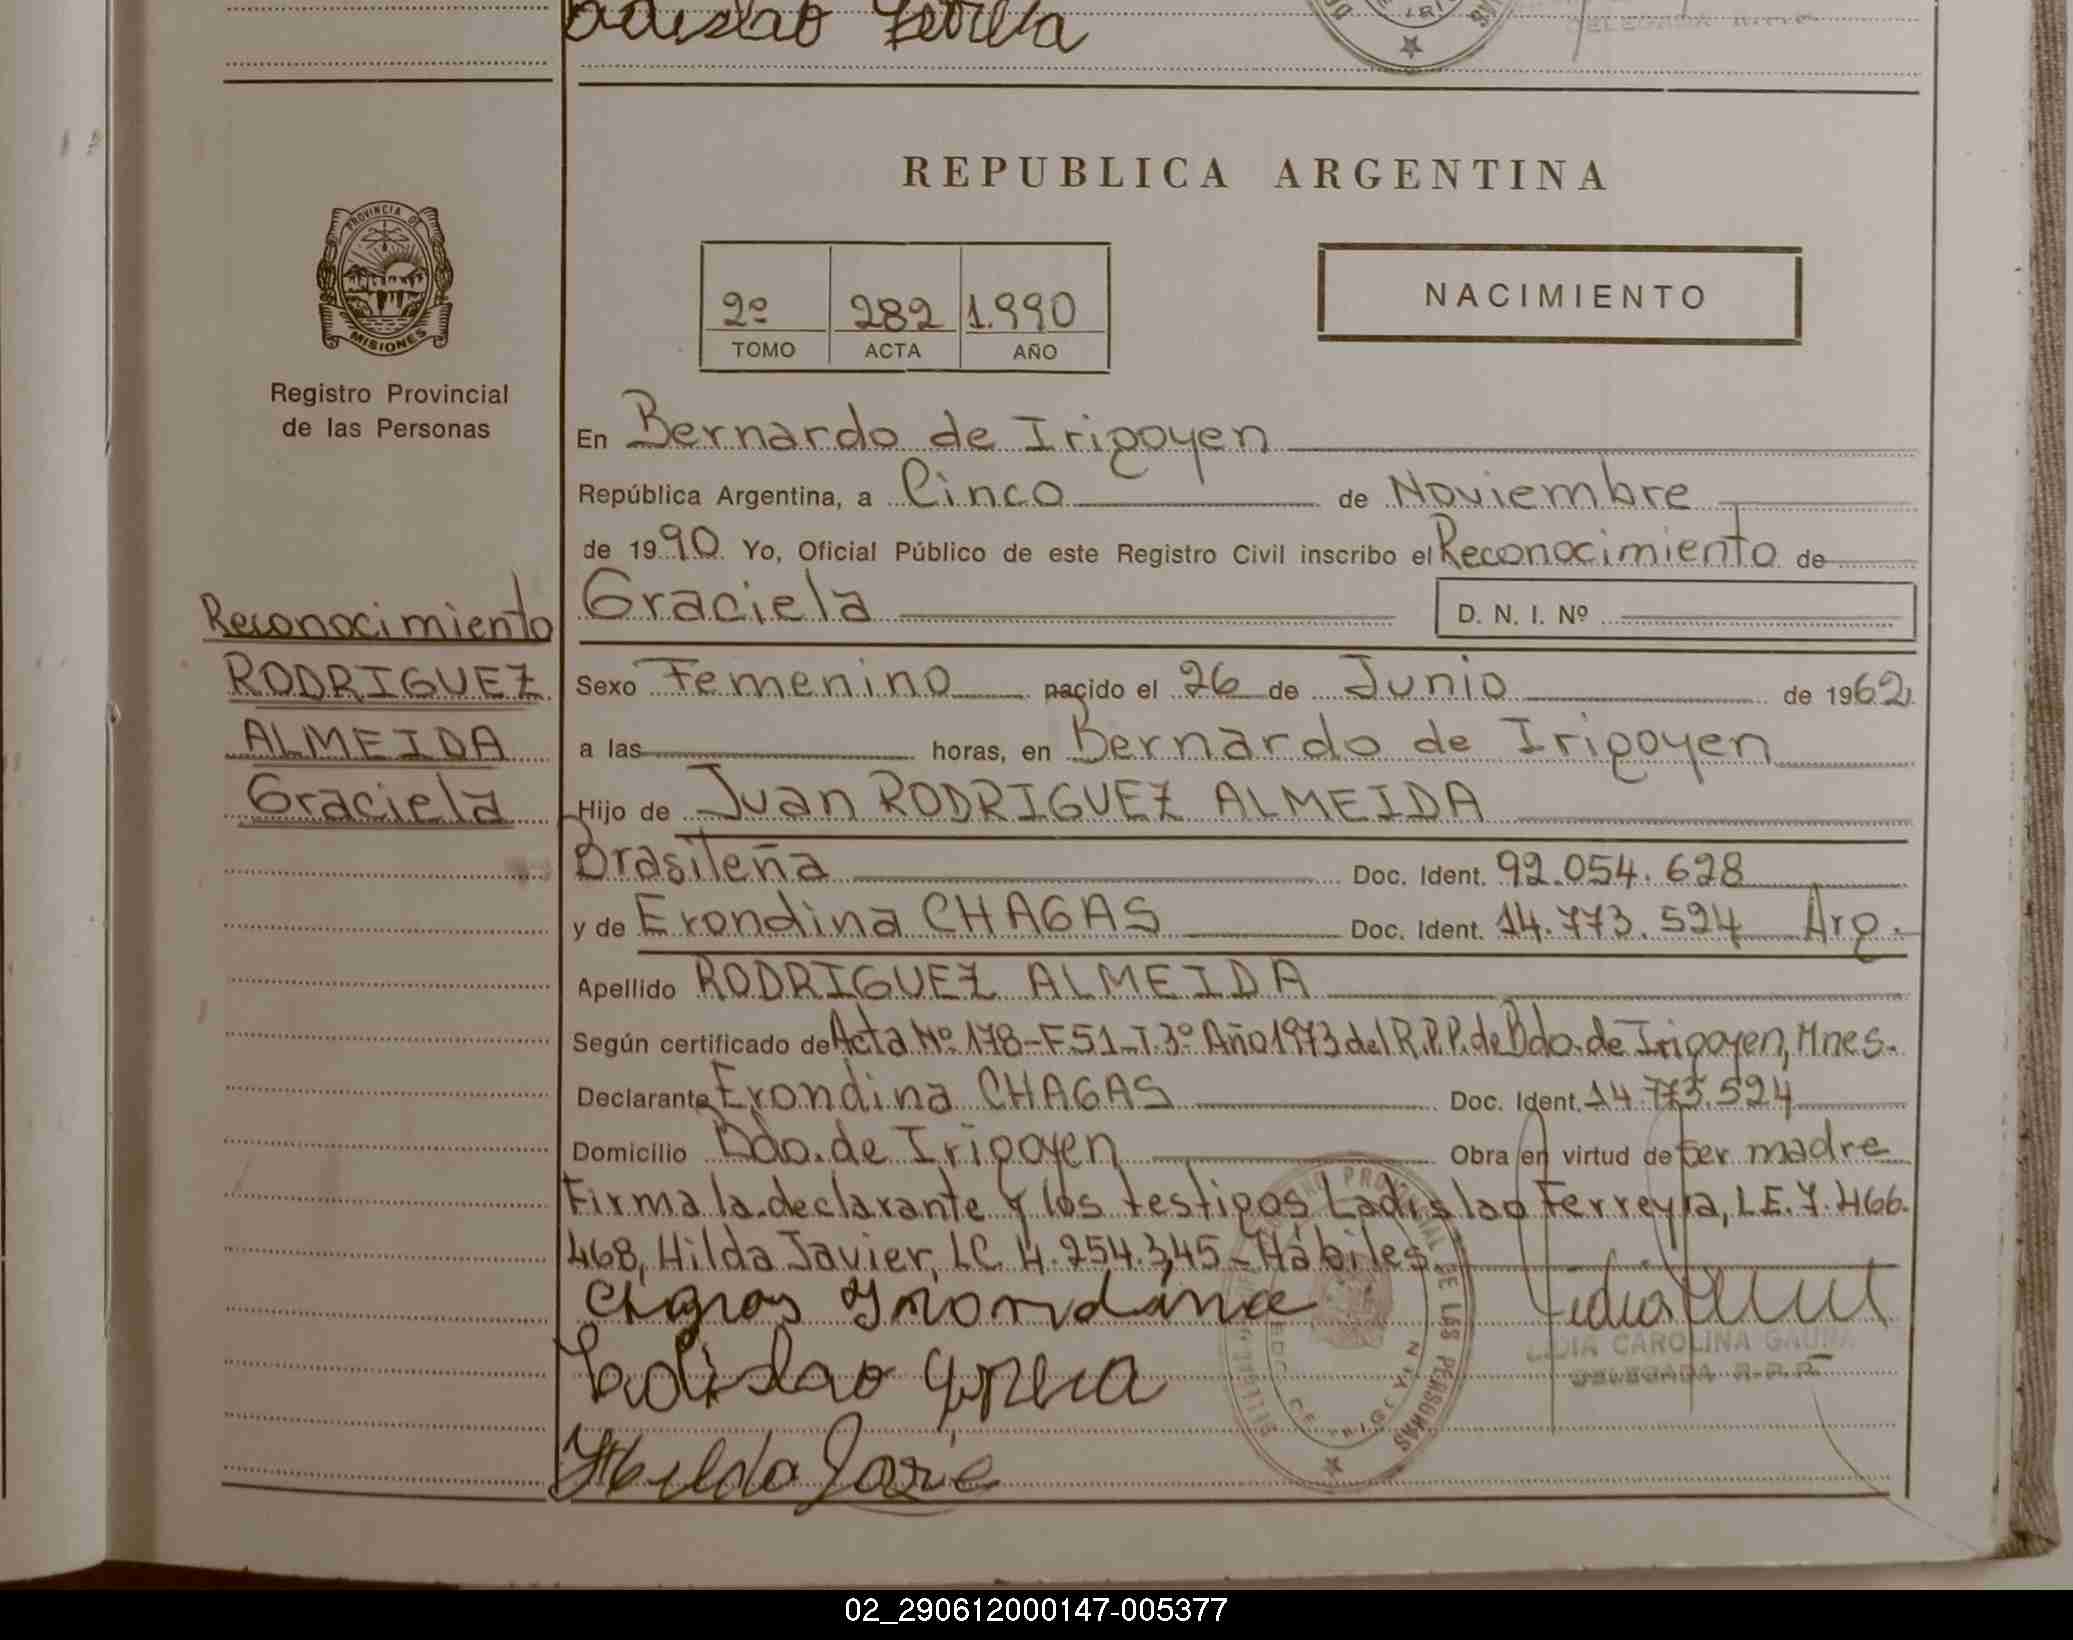 REPUBLICA ARGENTINA
PROVINCIA DE MISIONES
Registro Provincial
de las Personas
2º 282 1.990
TOMO ACTA AÑO
NACIMIENTO
En Bernardo de Irigoyen
República Argentina, a Cinco de Noviembre
de 1990 Yo, Oficial Público de este Registro Civil inscribo el Reconocimiento de
Graciela D. N. I. Nº
Reconocimiento
RODRIGUEZ
ALMEIDA
Graciela
Sexo Femenino nacido el 26 de Junio de 1962
a las horas, en Bernardo de Irigoyen
Hijo de Juan RODRIGUEZ ALMEIDA
Brasileña Doc. Ident. 92.054.628
y de Erondina CHAGAS Doc. Ident. 14.773.524 Arg.
Apellido RODRIGUEZ ALMEIDA
Según certificado de Acta Nº 178-F51-T.3º Año 1973 del R.P.P. de Bdo. de Irigoyen, Mnes.
Declarante Erondina CHAGAS Doc. Ident. 14.773.524
Domicilio Bdo. de Irigoyen Obra en virtud de ser madre
Firma la declarante y los testigos Ladislao Ferreyra, L.E. 7.466.
468, Hilda Javier, LC. 4.254.345 - Hábiles.
LIDIA CAROLINA
DELEGADA R.P.P.
02_290612000147-005377